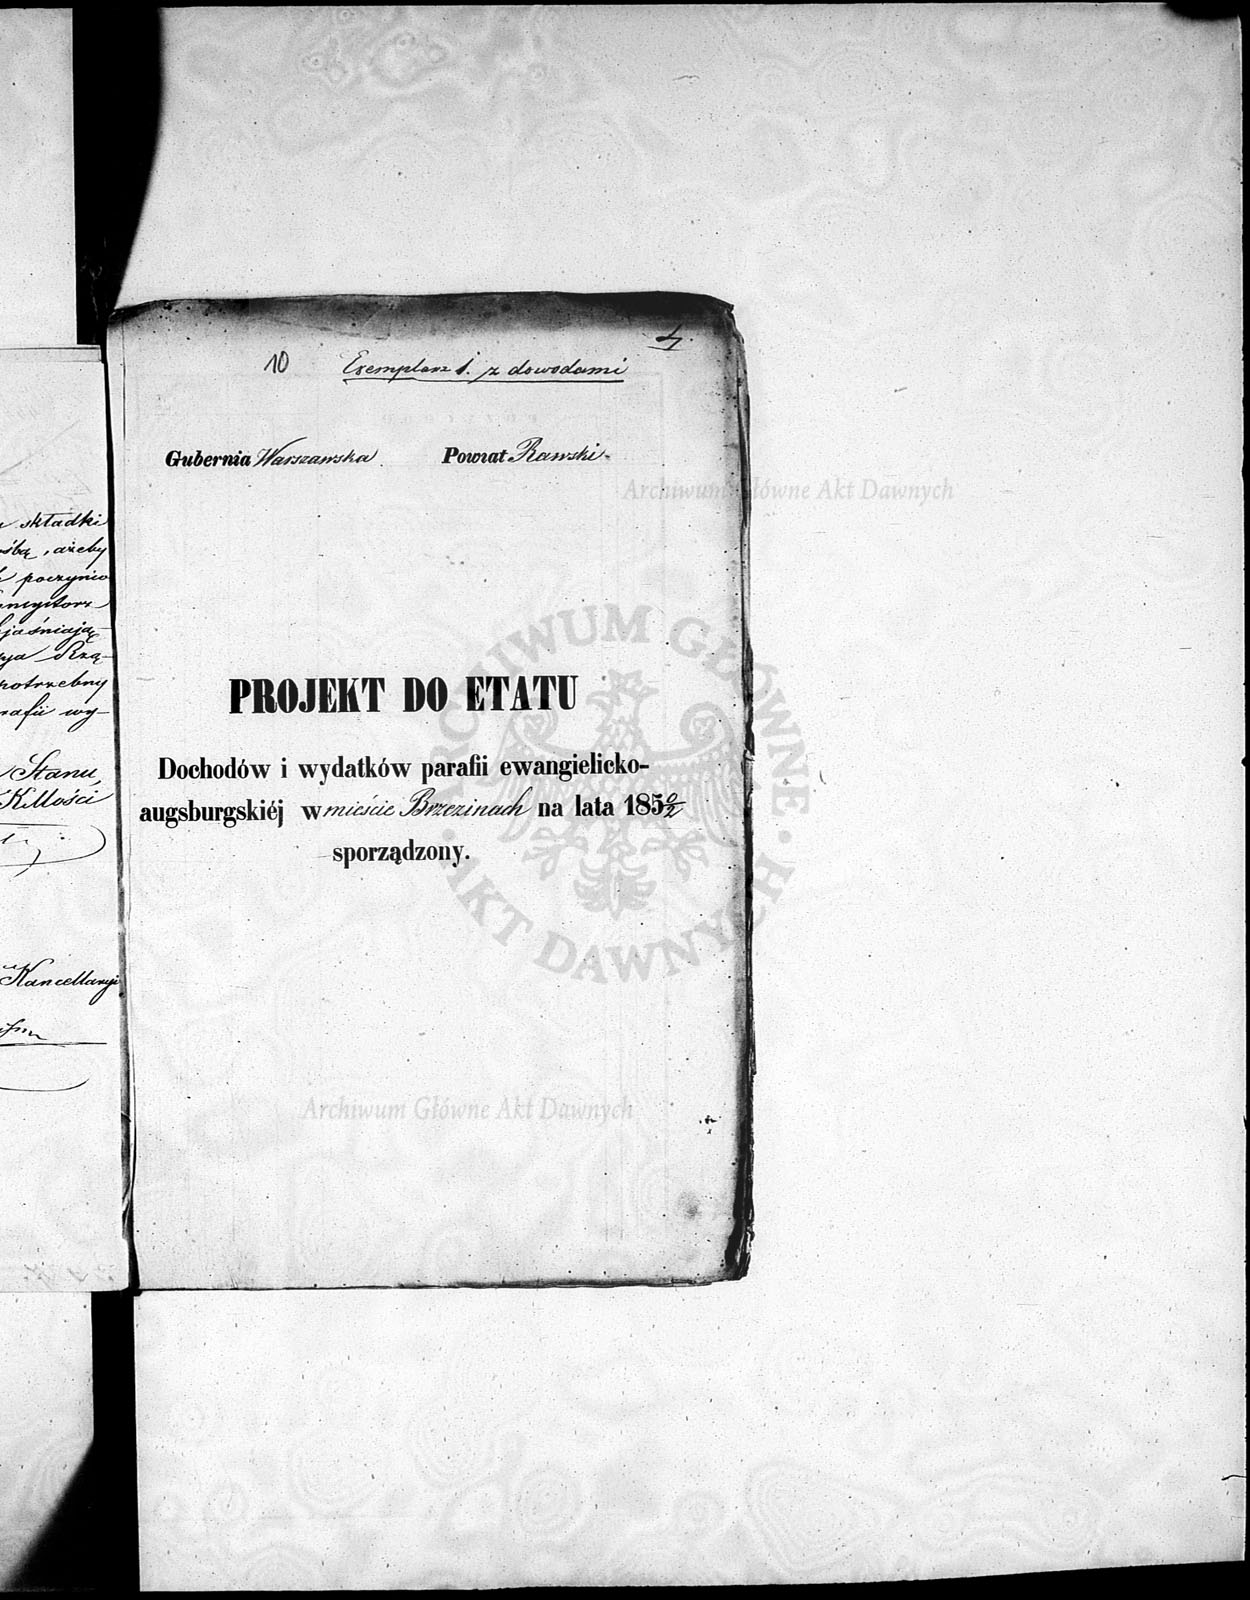 składki
ażeby
poczynio
jaśniają-
Rzą-
potrzebny
rafii wy-
Stanu,
Kancellaryi
4.
10 Exemplarz 1. z dowodami
Gubernia Warszawska. Powiat Rawski.
PROJEKT DO ETATU
Dochodów i wydatków parafii ewangielicko-
augsburgskiéj w mieście Brzezinach na lata 185 0/2
sporządzony.
Archiwum Główne Akt Dawnych
ARCHIWUM GŁÓWNE
· AKT DAWNYCH ·
Archiwum Główne Akt Dawnych